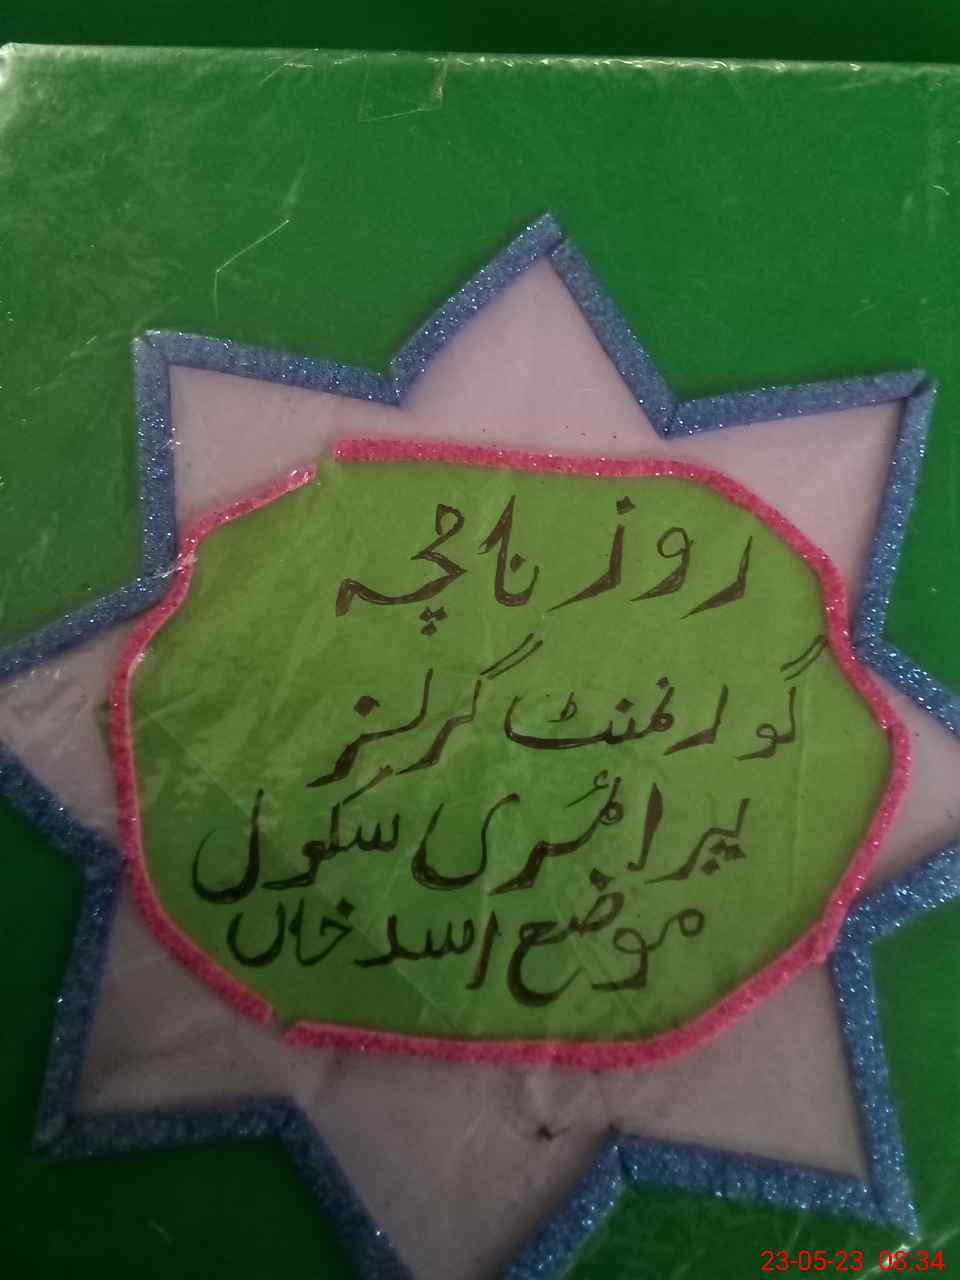 روزنامچہ
گورنمنٹ گرلز
پرائمری سکول
موضع اسد خاں
23-05-23 08:34